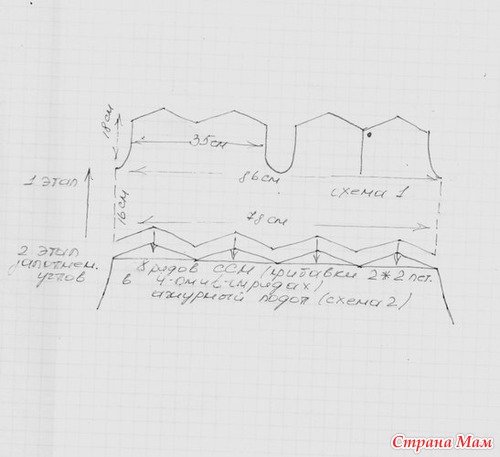 18см
35см
86см
1 этап
схема 1
16см
78см
2 этап
заполнен.
углов
8 рядов ССН (прибавки 2*2 пет.
в 4-ом и рядах)
ажурный подол (схема 2)
Страна Мам